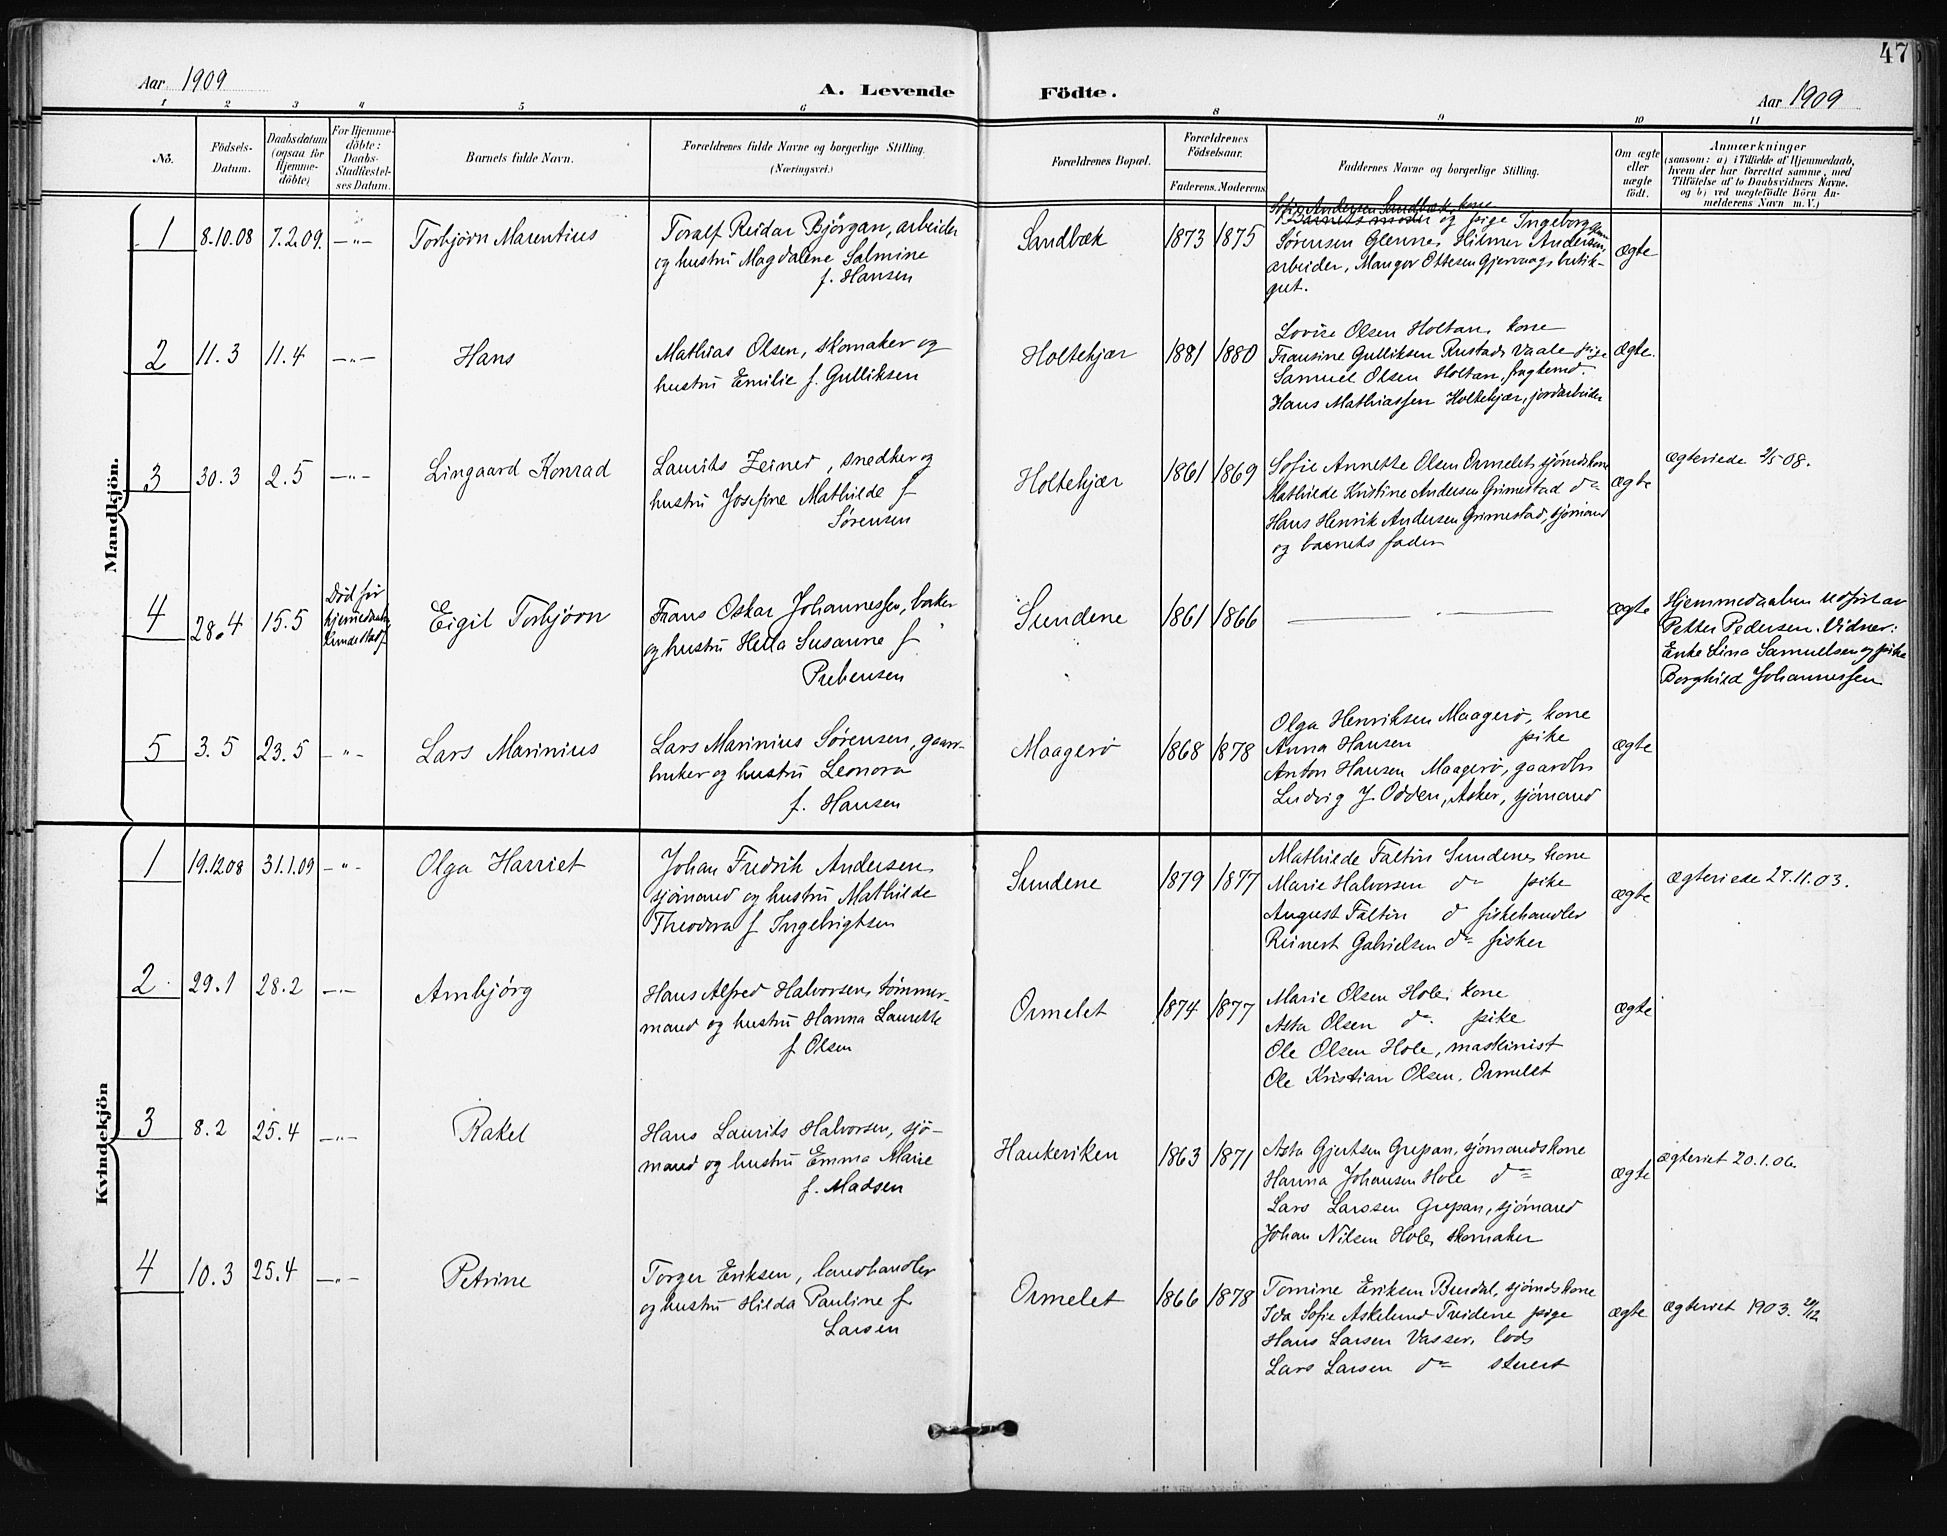 47
Aar 1909
A. Levende Födte.
Aar 1909
1 2 3 4 5 6 8 9 10 11
No.
Födsels-Datum.
Daabsdatum (ogsaa for Hjemme-döbte)
For Hjemme-döbte: Daabs-Stadfestel-ses Datum.
Barnets fulde Navn.
Forældrenes fulde Navne og borgerlige Stilling.
(Næringsvei.)
Forældrenes Bopæl.
Forældrenes Födselsaar.
Faderens. Moderens.
Faddernes Navne og borgerlige Stilling.
Om ægte eller uægte födt.
Anmærkninger
(sansom: a) i Tilfælde af Hjemmedaab,
hvem der har forrettet samme, med
Tilföielse af to Daabsvidners Navne.
og b) ved uægtefödte Börn An-
melderens Navn m. V.)
Mandkjön.
1 8.10.08 7.2.09. —"— Torbjørn Marentius
Toralf Reidar Bjørgan, arbeider
og hustru Magdalene Salmine
f. Hansen
Sandbæk 1873 1875
Andersen Sandbæk kone
Barnets moder og pige Ingeborg
Sørensen Glenne, Hilmer Andersen,
arbeider, Mangor Ottesen Gjervaag, butik-
gut.
ægte
2 11.3 11.4 —"— Hans
Mathias Olsen, skomaker og
hustru Emilie f. Gulliksen
Holtekjær 1881 1880
Lovise Olsen Holtan, kone
Fransine Gulliksen Rustad, Vaale pige
Samuel Olsen Holtan, fragtemd.
Hans Mathiassen Holtekjær, jordarbeider
ægte.
3 30.3 2.5 —"— Lingaard Konrad
Laurits Zeiner, snedker og
hustru Josefine Mathilde f
Sørensen
Holtekjær 1861 1869
Sofie Annette Olsen Ormelet, sjømdskone
Mathilde Kristine Andersen Grimestad do
Hans Henrik Andersen Grimestad, sjømand
og barnets fader
ægte
ægteviede 2/5-08.
4 28.4 15.5
Død før
Eigil Torbjørn
Frans Oskar Johannessen, baker
og hustru Hella Susanne f
Prebensen
Sundene 1861 1866 —— " ——
ægte
Hjemmedaaben udført av
Petter Pedersen. Vidner:
Enke Lina Samuelsen og pike
Borghild Johannessen
5 3.5 23.5 —"— Lars Marinius
Lars Marinius Sørensen, gaar-
bruker og hustru Leonora
f. Hansen
Maagerø 1868 1878
Olga Henriksen Maagerø, kone
Anna Hansen pike
Anton Hansen Maagerø, gaardbr.
Ludvig J. Odden, Asker, sjømand
ægte
Kvindekjön
1 19.12.08 31.1.09 —"— Olga Harriet
Johan Fredrik Andersen
sjømand og hustru Mathilde
Theodora f Ingebrigtsen
Sundene 1879 1877
Mathilde Faltin Sundene, kone
Marie Halvorsen do pike
August Faltin d fiskehandler
Reinert Gabrielsen do fisker
ægte
ægteviede 27.11.03.
2 29.1 28.2 —"— Arnbjørg
Hans Alfred Halvorsen, tømmer-
mand og hustru Hanna Laurette
f Olsen
Ormelet 1874 1877
Marie Olsen Hole, kone
Asta Olsen do pike
Ole Olsen Hole, maskinist
Ole Kristian Olsen, Ormelet
ægte
3 8.2 25.4 —"— Rakel
Hans Laurits Halvorsen, sjø-
mand og hustru Emma Marie
f. Madsen
Haukeviken 1863 1871
Asta Gjertsen Grepan, sjømandskone
Hanna Johansen Hole do
Lars Larssen Grepan, sjømand
Johan Nilsen Hole, skomaker
ægte
ægteviet 20.1.06.
4 10.3 25.4 —"— Petrine
Torger Eriksen, landhandler
og hustru Hilda Pauline f
Larsen
Ormelet 1866 1878
Tomine Eriksen Burdal, sjømdskone
Ida Sofie Askelund Treidene pige
Hans Larsen Vasser, lods
Lars Larsen do stuert
ægte
ægteviet 1903. 29/12